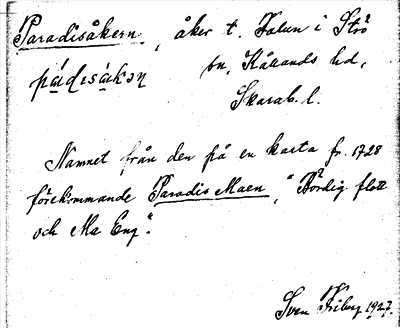 Paradisåkern, åker t. Falun i Strö
sn, Kållands hd,
pádisàkɔn
Skarab. l.
Namnet från den på en karta fr. 1728
förekommande Paradis Maen, "Bördig flat
och Ma Eng".
Sven Friberg 1927.